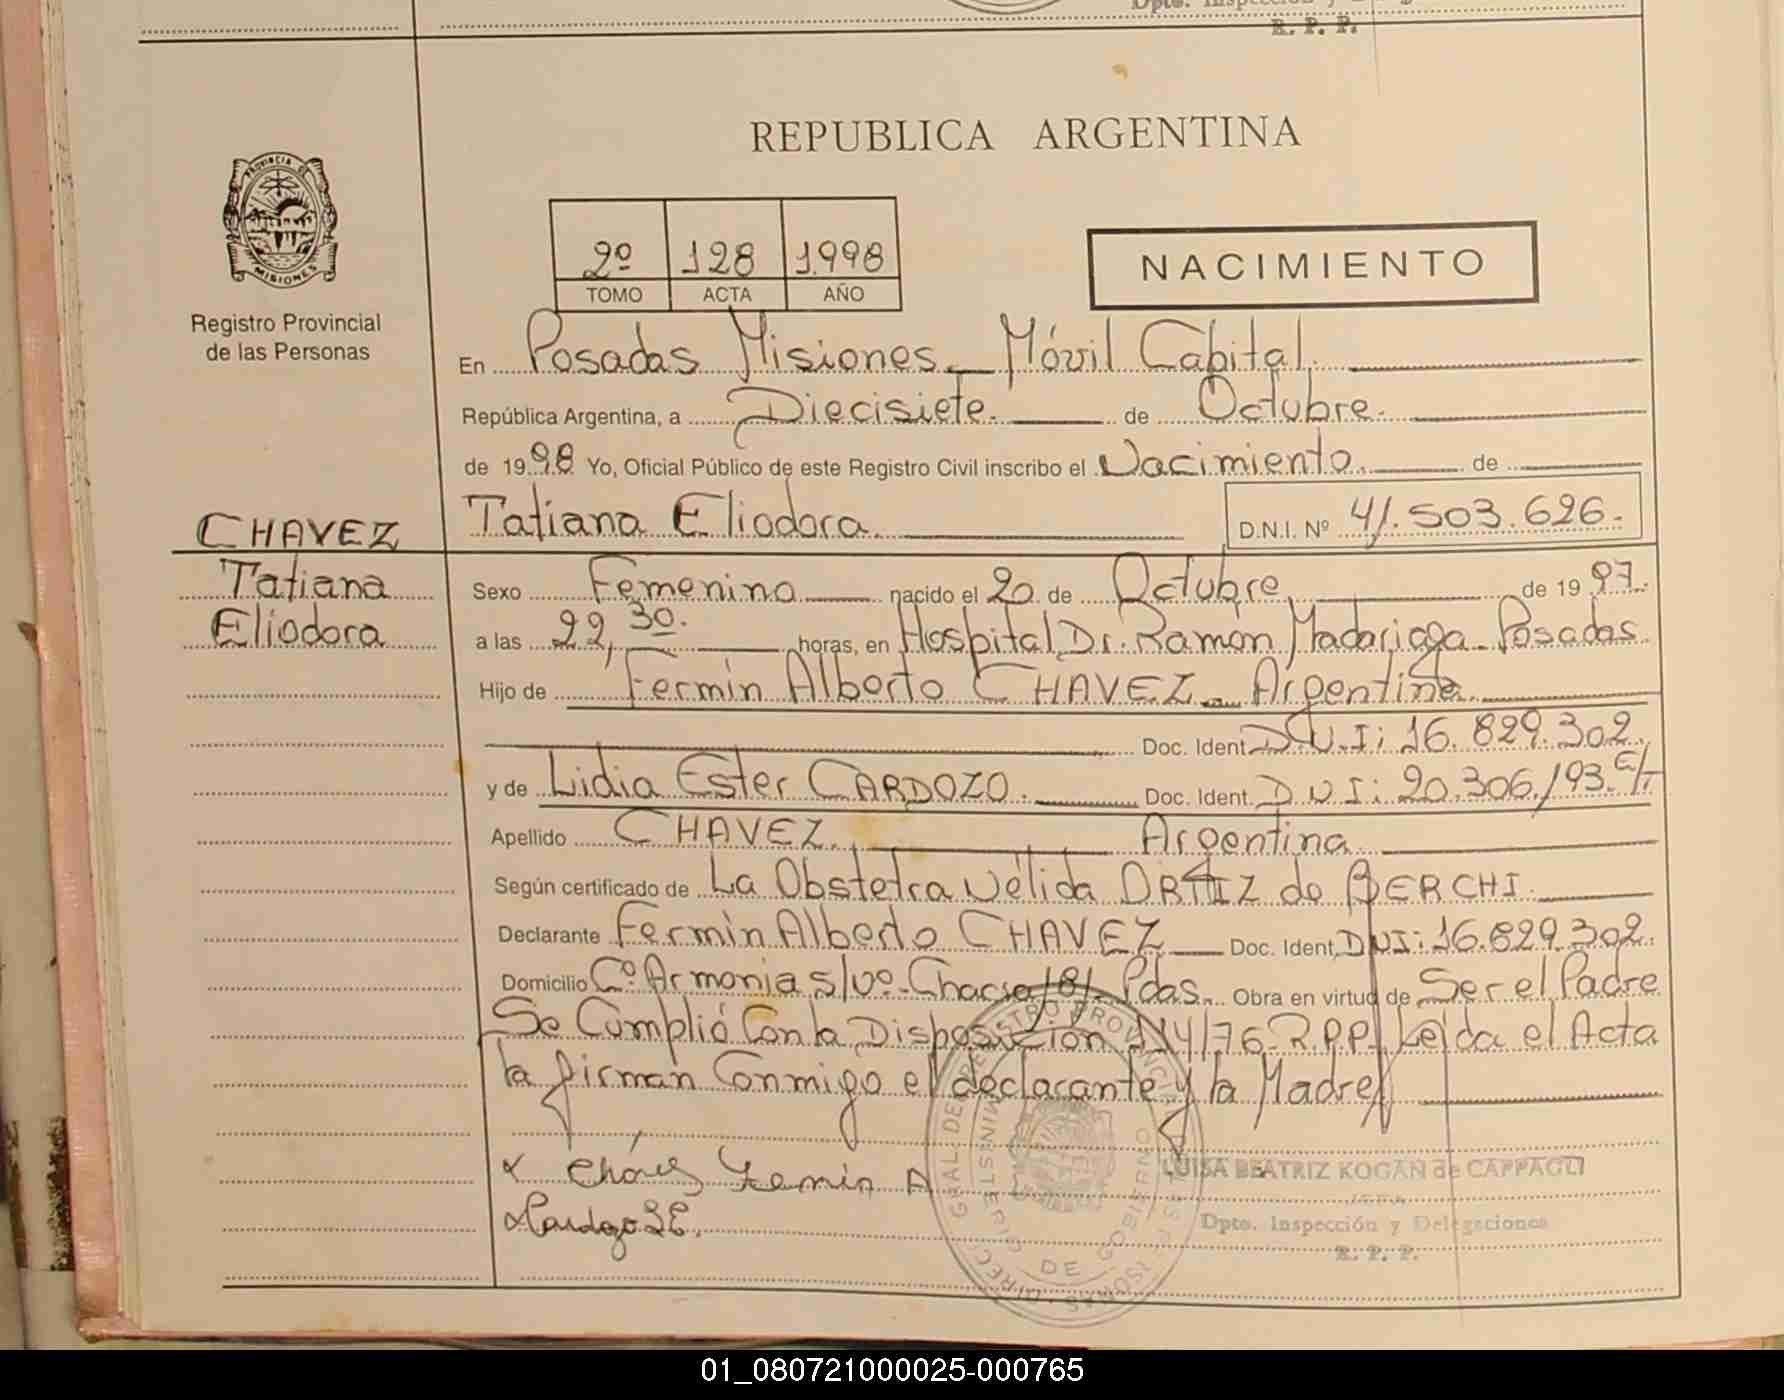 R. P. P.
REPUBLICA ARGENTINA
PROVINCIA DE
MISIONES
Registro Provincial
de las Personas
2º 128 1998
TOMO ACTA AÑO
NACIMIENTO
En Posadas Misiones - Móvil Capital.
República Argentina, a Diecisiete. de Octubre.
de 1998 Yo, Oficial Público de este Registro Civil inscribo el Nacimiento. de
Tatiana Eliodora. D.N.I. Nº 41.503.626.
CHAVEZ
Tatiana
Eliodora
Sexo Femenino nacido el 20 de Octubre de 1997.
a las 22,30. horas, en Hospital Dr. Ramón Madariaga - Posadas.
Hijo de Fermin Alberto CHAVEZ - Argentina
Doc. Ident. D.N.I: 16.829.302.
y de Lidia Ester CARDOZO. Doc. Ident. D N I: 20.306.193. C/T
Apellido CHAVEZ. Argentina
Según certificado de La Obstetra Nélida ORTIZ de BERCHI.
Declarante Fermin Alberto CHAVEZ Doc. Ident. DNI: 16.829.302.
Domicilio Cº Armonia s/nº - Chacra 181 - Pdas. Obra en virtud de Ser el Padre
Se Cumplió Con la Disposición 114/76 R.P.P. Leida el Acta
la firman Conmigo el declarante y la Madre
x Cháves Fermin A
x Cardozo L E.
DIRECC. GRAL DEL REGISTRO PROVINCIAL
MINISTERIO DE GOBIERNO
LUISA BEATRIZ KOGAN de CAPPAGLI
JEFA
Dpto. Inspección y Delegaciones
R. P. P.
01_080721000025-000765